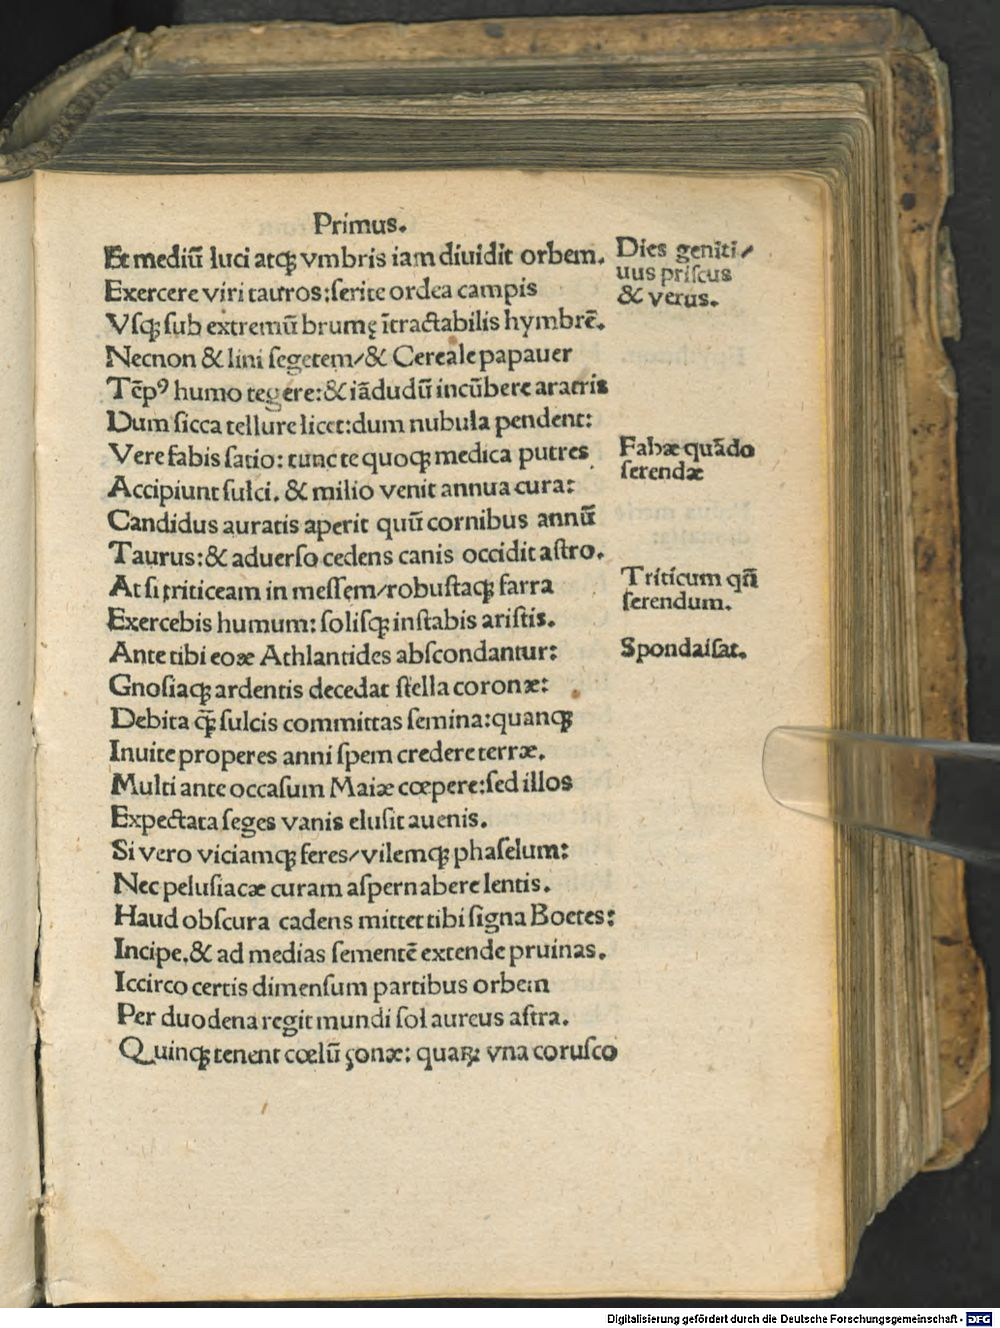 Primus.
Et mediū luci atqꝫ vmbris iam diuidit orbem.
Dies geniti/
uus priſcus
& verus.
Exercere viri tauros:ſerite ordea campis
Vſqꝫ ſub extremū brumę ītractabilis hymbrē.
Necnon & lini ſegetem/& Cereale papauer
Tēpꝰ humo tegere:& iādudū incūbere aratris
Dum ſicca tellure licet:dum nubula pendent:
Vere fabis ſatio: tunc te quoqꝫ medica putres
Fabæ quādo
ſerendæ
Accipiunt ſulci. & milio venit annua cura:
Candidus auratis aperit quū cornibus annū
Taurus:& aduerſo cedens canis occidit aſtro.
At ſi triticeam in meſſem/robuſtaqꝫ farra
Triticum qñ
ſerendum.
Exercebis humum: ſoliſqꝫ inſtabis ariſtis.
Ante tibi eoæ Athlantides abſcondantur:
Spondaiſat.
Gnoſiaqꝫ ardentis decedat ſtella coronæ:
Debita q̄ꝫ ſulcis committas ſemina:quanqꝫ
Inuite properes anni ſpem credere terræ.
Multi ante occaſum Maiæ cœpere:ſed illos
Expectata ſeges vanis eluſit auenis.
Si vero viciamqꝫ ſeres/vilemqꝫ phaſelum:
Nec peluſiacæ curam aſpernabere lentis.
Haud obſcura cadens mittet tibi ſigna Boetes:
Incipe.& ad medias ſementē extende pruinas.
Iccirco certis dimenſum partibus orbem
Per duodena regit mundi ſol aureus aſtra.
Quinqꝫ tenent cœlū çonæ: quaꝝ vna coruſco
Digitalisierung gefördert durch die Deutsche Forschungsgemeinschaft - DFG